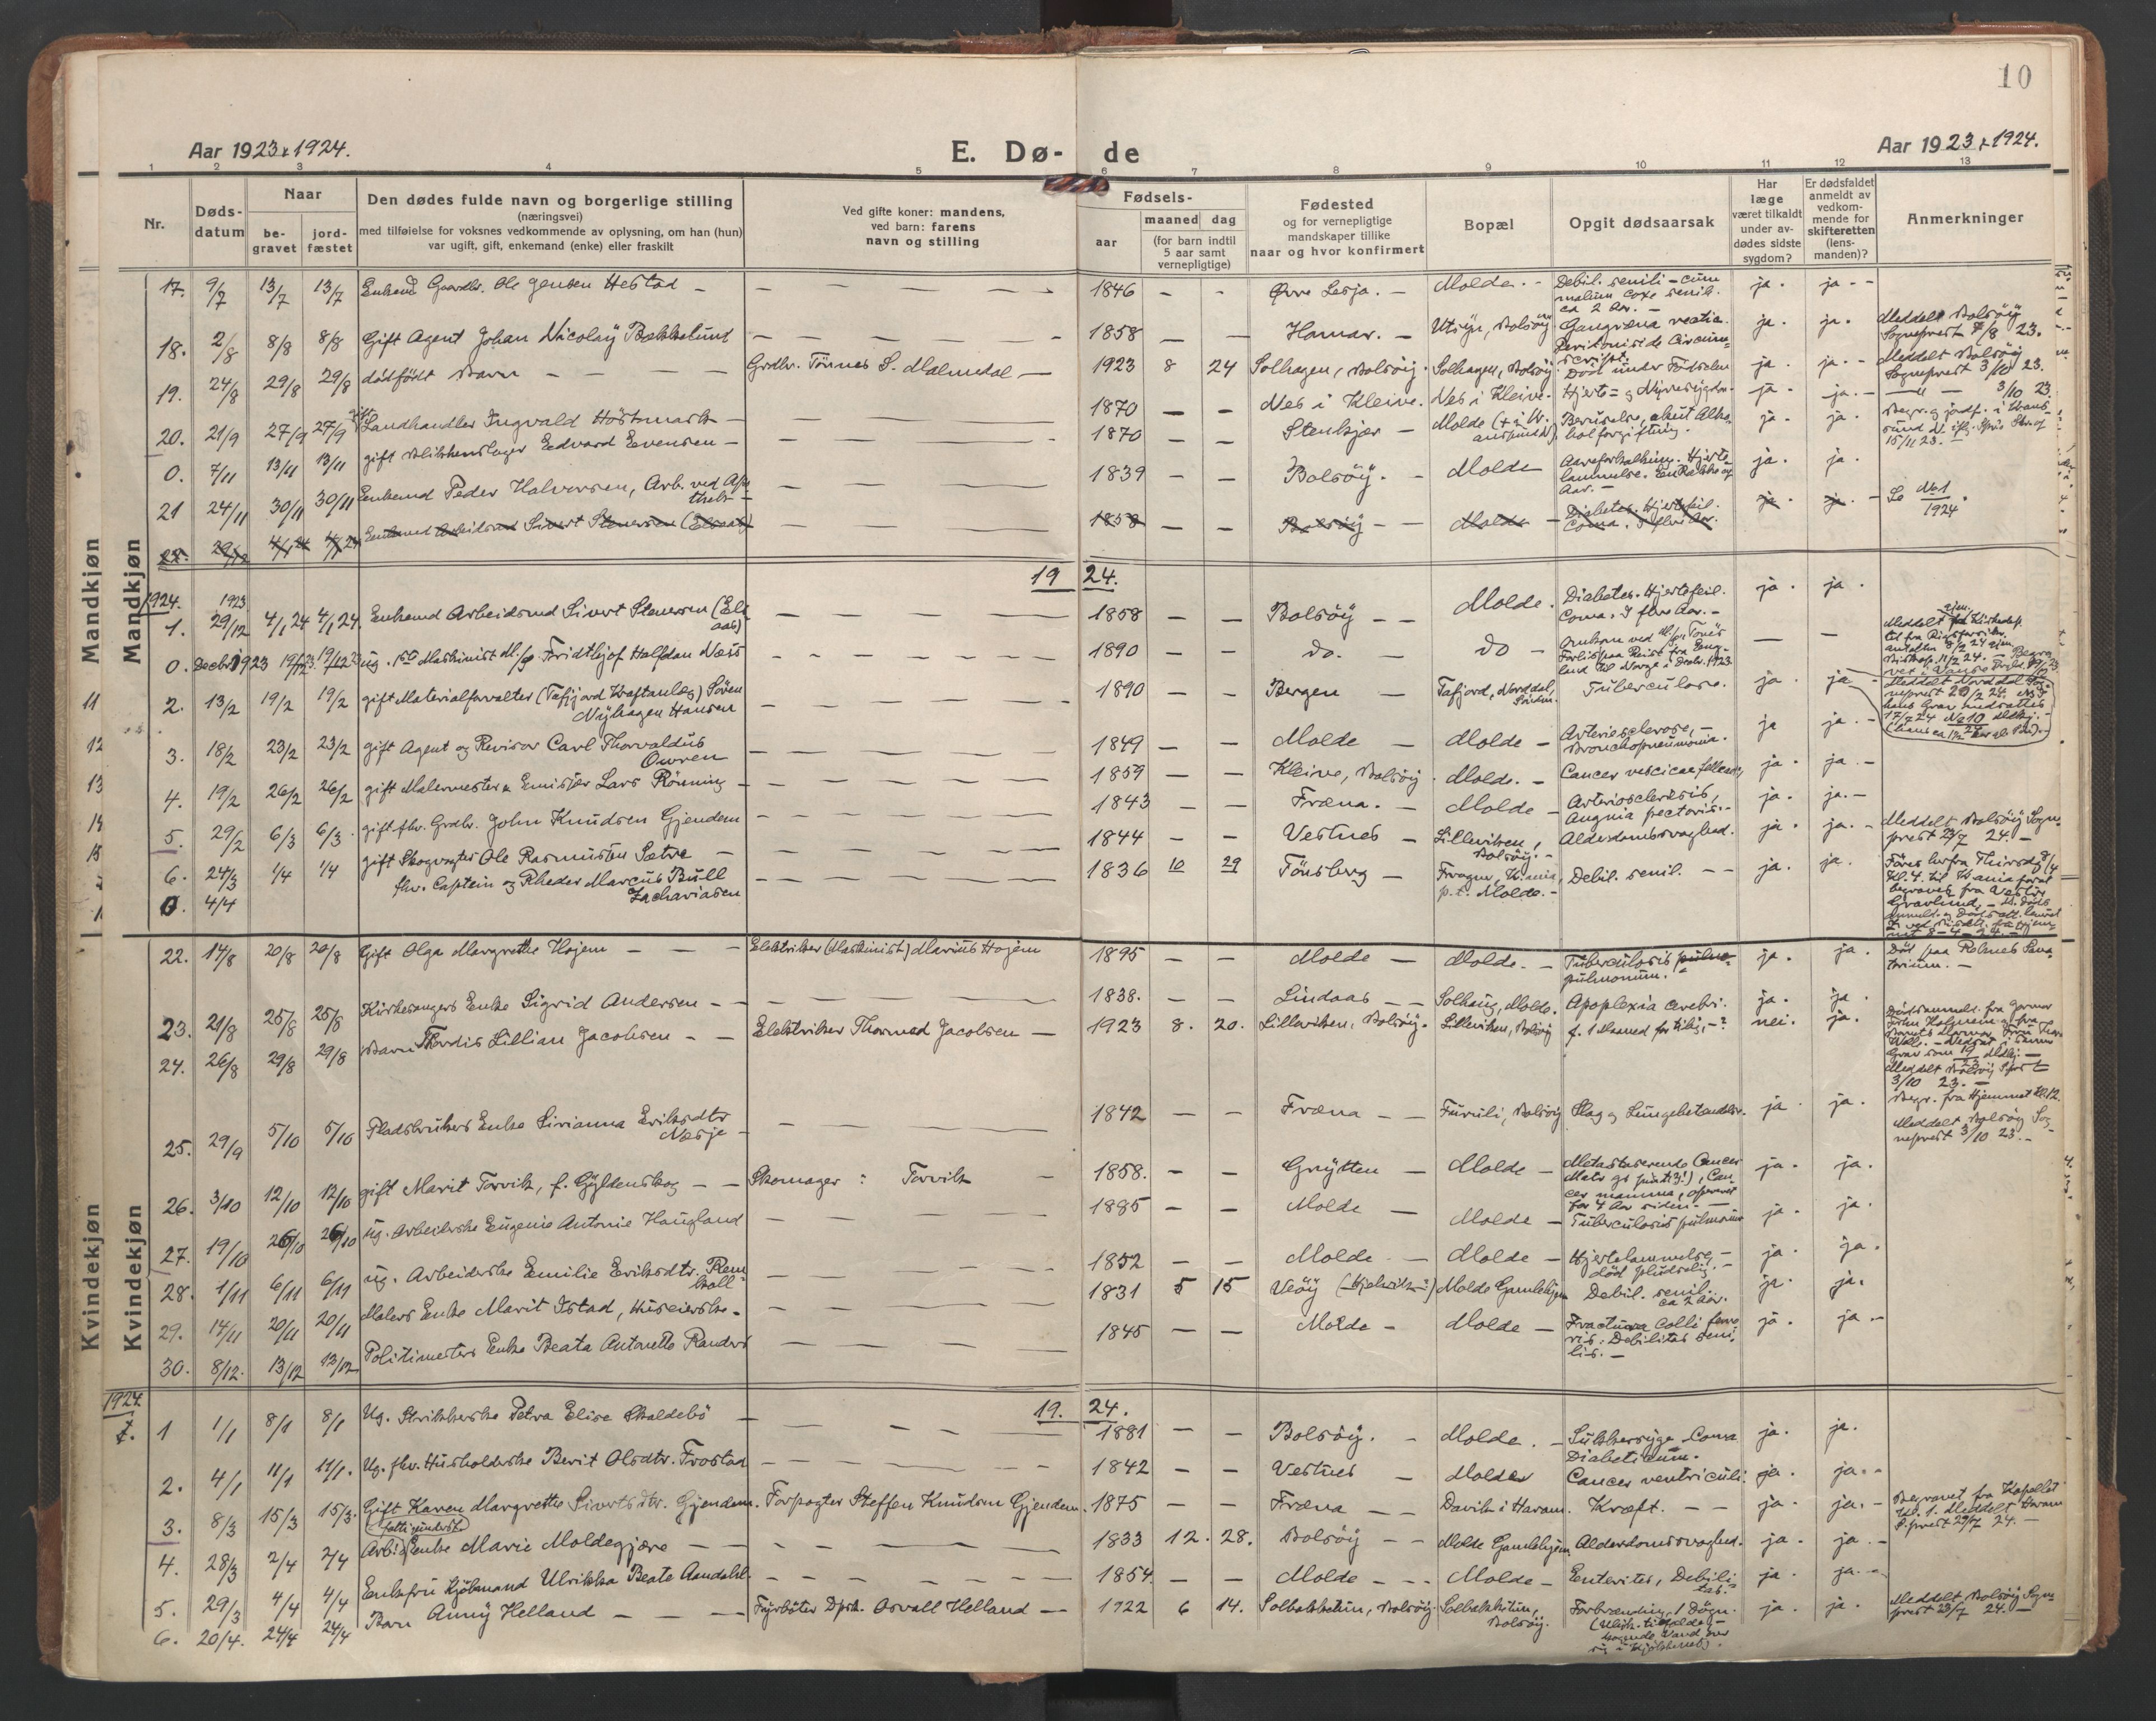 10
Aar 1923 & 1924.
E. Dø- de
Aar 1923 & 1924.
1 2 3 4 5 6 7 8 9 10 11 12 13
Nr.
Døds-
datum
Naar
be-
gravet
jord-
fæstet
Den dødes fulde navn og borgerlige stilling
(næringsvei)
med tilføielse for voksnes vedkommende av oplysning, om han (hun)
var ugift, gift, enkemand (enke) eller fraskilt
Ved gifte koner: mandens,
ved barn: farens
navn og stilling
Fødsels-
aar
maaned dag
(for barn indtil
5 aar samt
vernepligtige)
Fødested
og for vernepligtige
mandskaper tillike
naar og hvor konfirmert
Bopæl
Opgit dødsaarsak
Har
læge
været tilkaldt
under av-
dødes sidste
sygdom?
Er dødsfaldet
anmeldt av
vedkom-
mende for
skifteretten
(lens-
manden)?
Anmerkninger
Mandkjøn
Mandkjøn
17. 9/7 13/7 13/7 Enkemd Gaardbr. Ole Jensen Hestad 1846 Øvre Lesja. Molde. Debil. senili – cum malum coxe senile. ca 2 Aar. ja. ja
18. 2/8 8/8 8/8 Gift Agent Johan Nicolay Bækkelund 1858 Hamar. Utsyn, Bolsöy Gangræna ja. ja. Meddelt Bolsöy Sogneprest 7/8 23.
19. 24/8 29/8 29/8 dödfödt Barn Grdbr. Tönnes S. Malmedal 1923 8 24 Solhagen, Bolsöy. Solhagen, Bolsöy. Död under Födselen ja. ja. Meddelt Bolsöy Sogneprest 3/10 23.
20. 21/9 27/9 27/9 gift Landhandler Ingvald Höstmark 1870 Nes i Kleive. Nes i Kleive. Hjerte= og Nyresygdom ja ja. 3/10 23.
0. 7/11 13/11 13/11 gift Blikkenslager Edvard Evensen 1870 Stenkjær Molde Beruselse, akut Alkoholforgiftning. ja. ja. 15/11 23.
21 24/11 30/11 30/11 Enkemd Peder Halvorsen, Arb. ved Apotheket 1839 Bolsöy. Molde Aareforkalkning. Hjertelammelse. En Række af Aar. ja. ja.
22. 29/12 4/1 24 4/1 24 Enkemd Arbeidsmd Sivert Stenersen (Elsaas) 1858 Bolsöy Molde Diabetes. Hjertefeil. Coma. I flere Aar. ja ja. Se No 1 1924.
19 24.
1924. 1923
1. 29/12 4/1 24 4/1 24. Enkemd Arbeidsmd Sivert Stenersen (Elsaas) 1858 Bolsöy Molde. Diabetes. Hjertefeil. Coma. I flere Aar. ja. ja.
0. Decbr 1923 19/12 23. 19/12 23 ug. 1ste Maskinist Fridthjof Halfdan Næss 1890 do. do Omkom ved Forlis paa Reise fra England til Norge i Decbr. 1923.
2. 13/2 19/2 19/2 gift Materialforvalter (Tafjord Kraftanlæg) Sören Nyhagen Hansen 1890 Bergen Tafjord, Norddal, Söndm. Tuberculose. ja. ja Meddelt Norddal Sogneprest 20/2 24.
3. 18/2 23/2 23/2 gift Agent og Revisor Carl Thorvaldus Owren 1849 Molde Molde Arteriosclerose, Bronchopneumonia. ja ja.
4. 19/2 26/2 26/2 gift Malermester Lars Rönning 1859 Kleive, Bolsöy. Molde. Cancer vescicae felleae ja. ja.
5. 29/2 6/3 6/3. gift fhv. Grdbr. John Knudsen Gjendem 1843 Fræna. Molde Arteriosclerosis, Angina pectoris. ja. ja.
6. 24/3 1/4 1/4 gift Skogvogter Ole Rasmussen Sætre 1844 Vestnes Lilleviken, Bolsöy. Alderdomssvaghed. ja. ja. Meddelt Bolsöy Sogneprest 23/7 24.
0. 4/4 fhv. Captein og Rheder Marcus Bull Zachariasen 1836 10 29 Tönsberg Frogner, Kr.ania, p.t. Molde. Debil. senil. ja. ja. Föres herfra Thirsdag 8/4 Kl. 4. til Kr.ania forat begraves fra Vestre Gravlund.
Kvindekjøn
Kvindekjøn
22. 14/8 20/8 20/8 Gift Olga Margrethe Hojem Elektriker (Maskinist) Marius Hojem 1895 Molde Molde. Tuberculosis pulmonum. ja. ja. Död paa Reknes Sanatorium.
23. 21/8 25/8 25/8 Kirkesangers Enke Sigrid Andersen 1838. Lindaas Solhaug, Molde. Apoplexia cerebri. ja. ja.
24. 26/8 29/8 29/8 Barn Thordis Lillian Jacobsen Elektriker Thormod Jacobsen 1923 8. 20. Lilleviken, Bolsöy. Lilleviken, Bolsöy f. 1 Maaned for tidlig, –? nei. ja. Meddelt Bolsöy Sprest 3/10 23.
25. 29/9 5/10 5/10 Pladsbrukers Enke Sirianna Eriksdtr Nesje 1842 Fræna Furuli, Bolsöy Slag og Lungebetændelse. ja. ja. Begr. fra Hjemmet Kl. 12. Meddelt Bolsöy Sogneprest 3/10 23.
26. 3/10 12/10 12/10 gift Marit Torvik, f. Gyldenskog Skomager : Torvik 1858. Grytten Molde Metastaserende Cancer, Cancer mamma, opereret for 4 Aar siden. ja. ja.
27. 19/10 26/10 26/10 ug. Arbeiderske Eugenie Antonie Haugland 1885 Molde Molde Tuberculosis pulmonum ja. ja.
28. 1/11 6/11 6/11 ug. Arbeiderske Emilie Eriksdtr. 1852 Molde Molde Hjertelammelse, död pludselig. ja. ja.
29. 14/11 20/11 20/11 Malers Enke Marit Istad, Huseierske. 1831 5 15 Veöy Molde Gamlehjem Debil. senil. ca 2 Aar. ja. ja.
30. 8/12. 13/12 13/12. Politimesters Enke Beata Antonette Randers 1845 Molde Molde Fractura Colli femoris. Debilitas senilis. ja. ja
1924. 19. 24.
1 1/1 8/1 8/1 Ug. Strikkerske Petra Elise Skaldebö 1881 Bolsöy. Molde. Sukkersyge. Coma Diabeticum. ja. ja.
2. 4/1 11/1 11/1. Ug. fhv. Husholderske Berit Olsdtr. Frostad 1842 Vestnes Molde Cancer ventriculi. ja. ja.
3. 8/3 15/3 15/3. Gift Karen Margrethe Sivertsdtr. Gjendem. Forpagter Steffen Knudsen Gjendem. 1875 Fræna Davik i Haram. Kræft. ja. ja. Begravet fra Kapellet Kl. 1. Meddelt Haram S.prest 29/7 24.
4. 28/3 2/4 2/4 Arb. Enke Marie Moldegjære 1833 12. 28. Bolsöy Molde Gamlehjem Alderdomssvaghed. ja. ja.
5. 29/3 4/4 4/4 Enkefru Kjöbmand Ulrikka Beate Aandahl. 1854. Molde Molde Enterites, Debilitas. ja. ja.
6. 20/4. 24/4 24/4 Barn Anny Helland Fyrböter Dpsk. Osvall Helland 1922 6 14. Solbakketun, Bolsöy. Solbakketun, Bolsöy. Forbrænding, 1 Dögn. ja. ja. Meddelt Bolsöy Sogneprest 23/7 24.